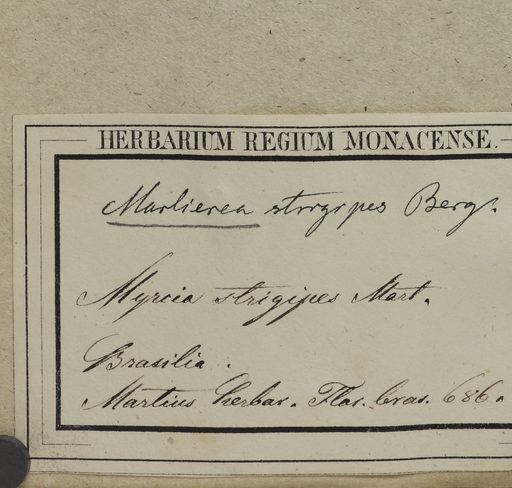 HERBARIUM REGIUM MONACENSE.
Marlierea strigipes Berg.
Myrcia strigipes Mart.
Brasilia.
Martius herbar. Flor. bras. 686.